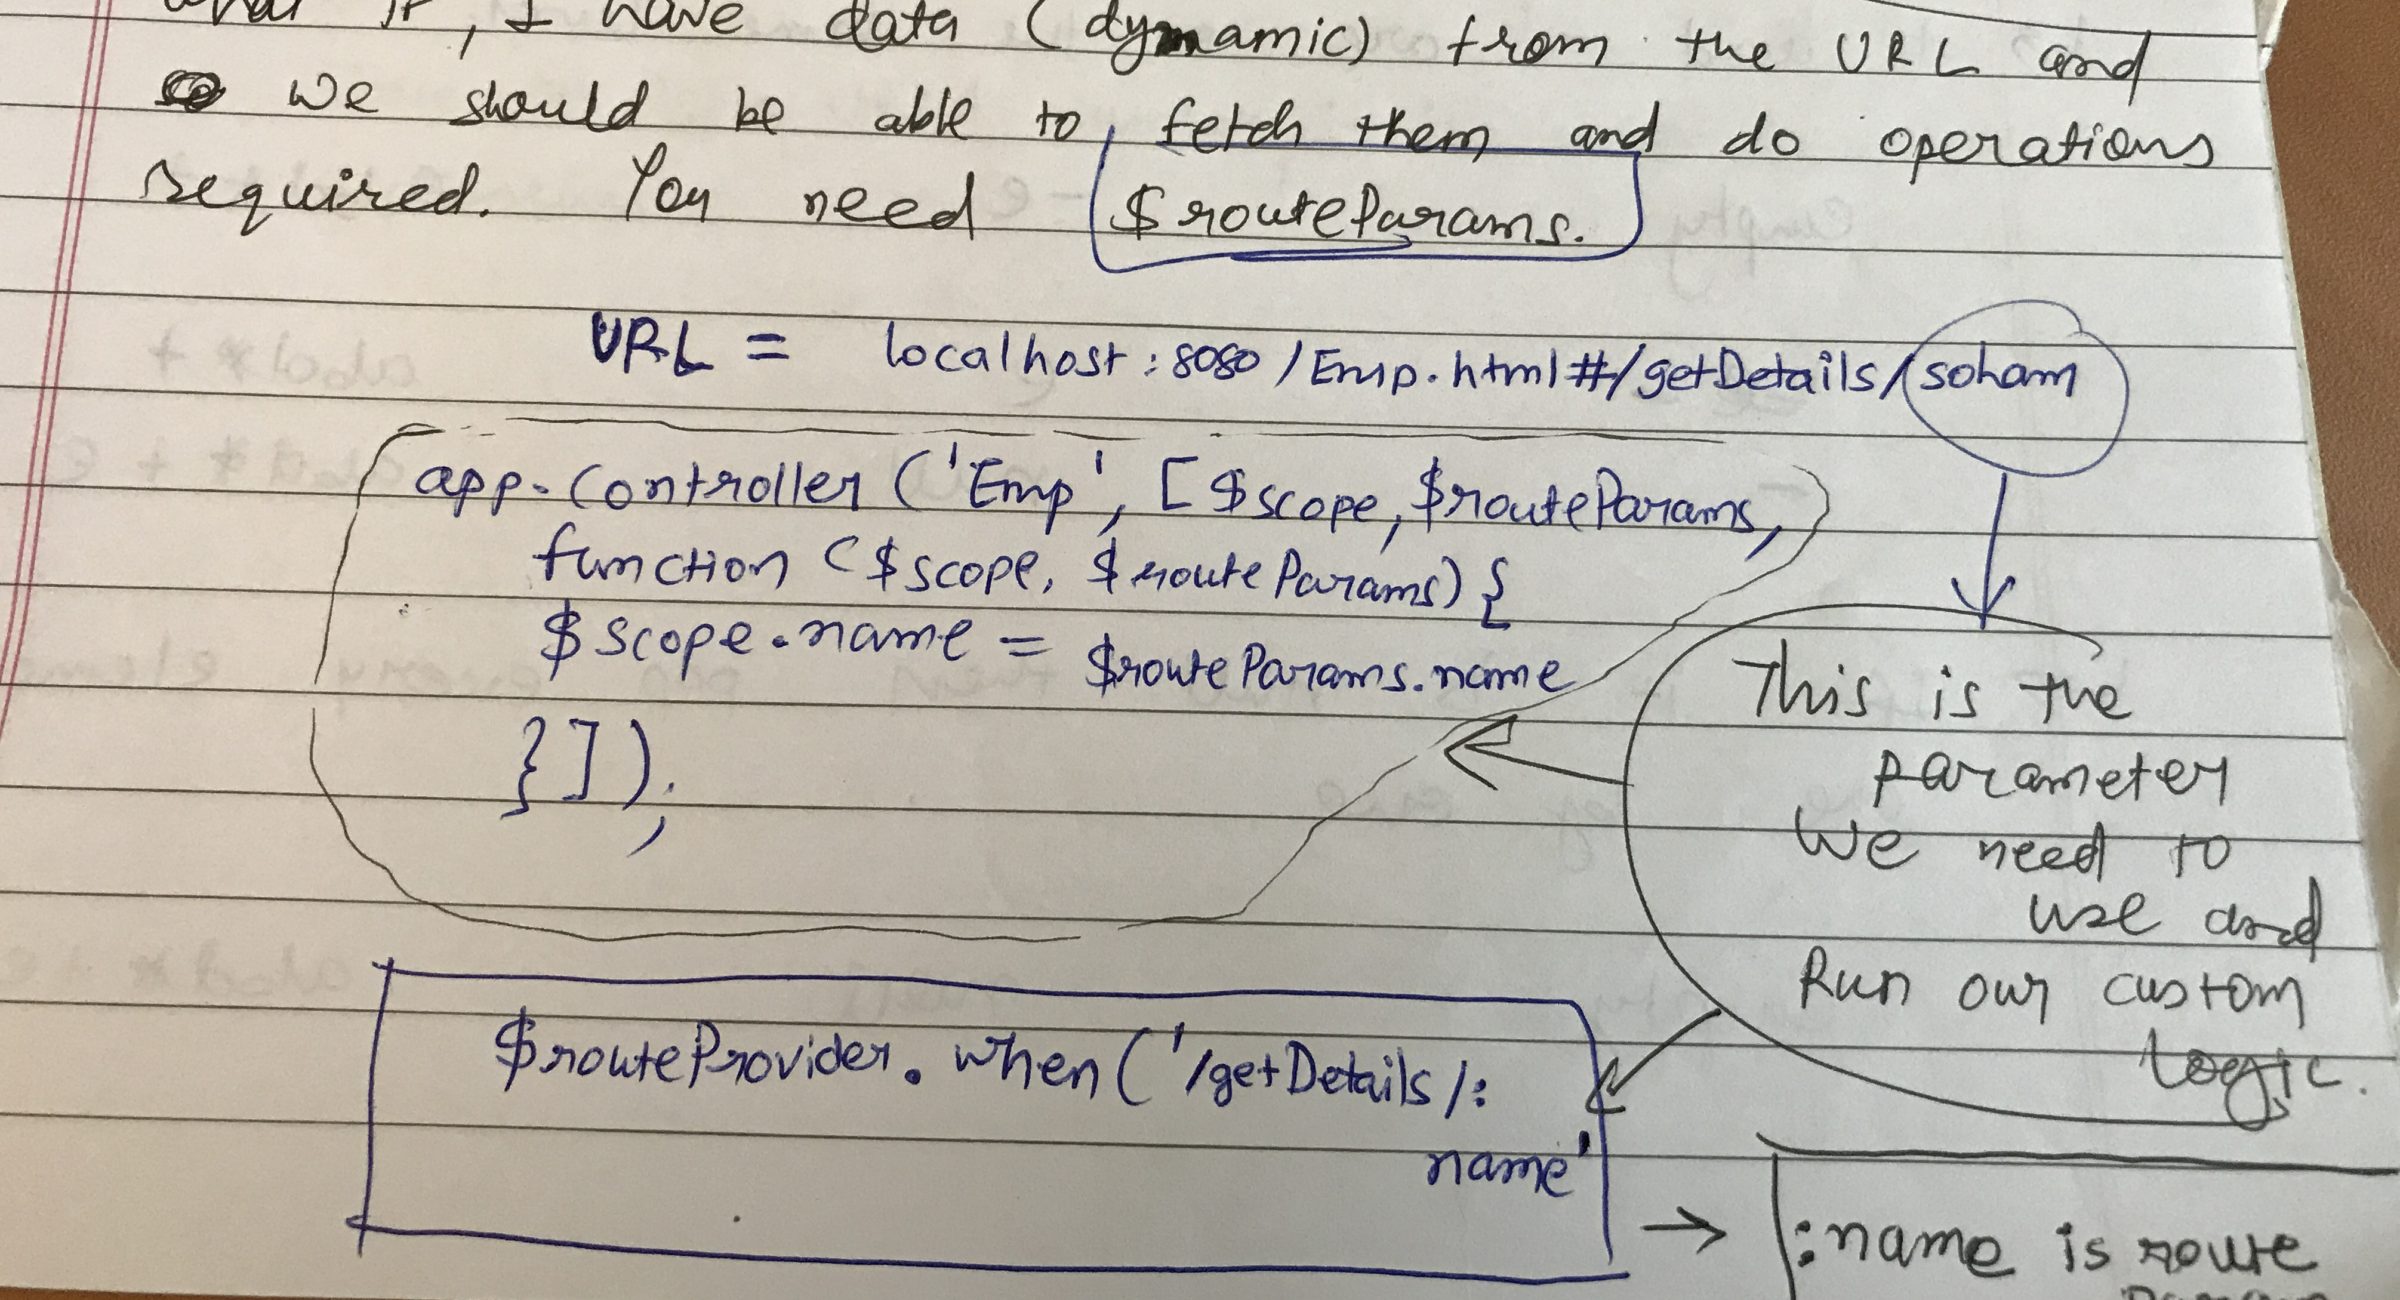 what if, I have data (dynamic) from the URL and
we should be able to fetch them and do operations
required. You need $routeParams.
URL = localhost:8080/Emp.html#/getDetails/soham
app.controller('Emp', [$scope, $routeParams,
function ($scope, $routeParams) {
$scope.name = $routeParams.name
}]);
This is the
parameter
We need to
use and
Run our custom
logic.
$routeProvider.when('/getDetails/:
name'
:name is route